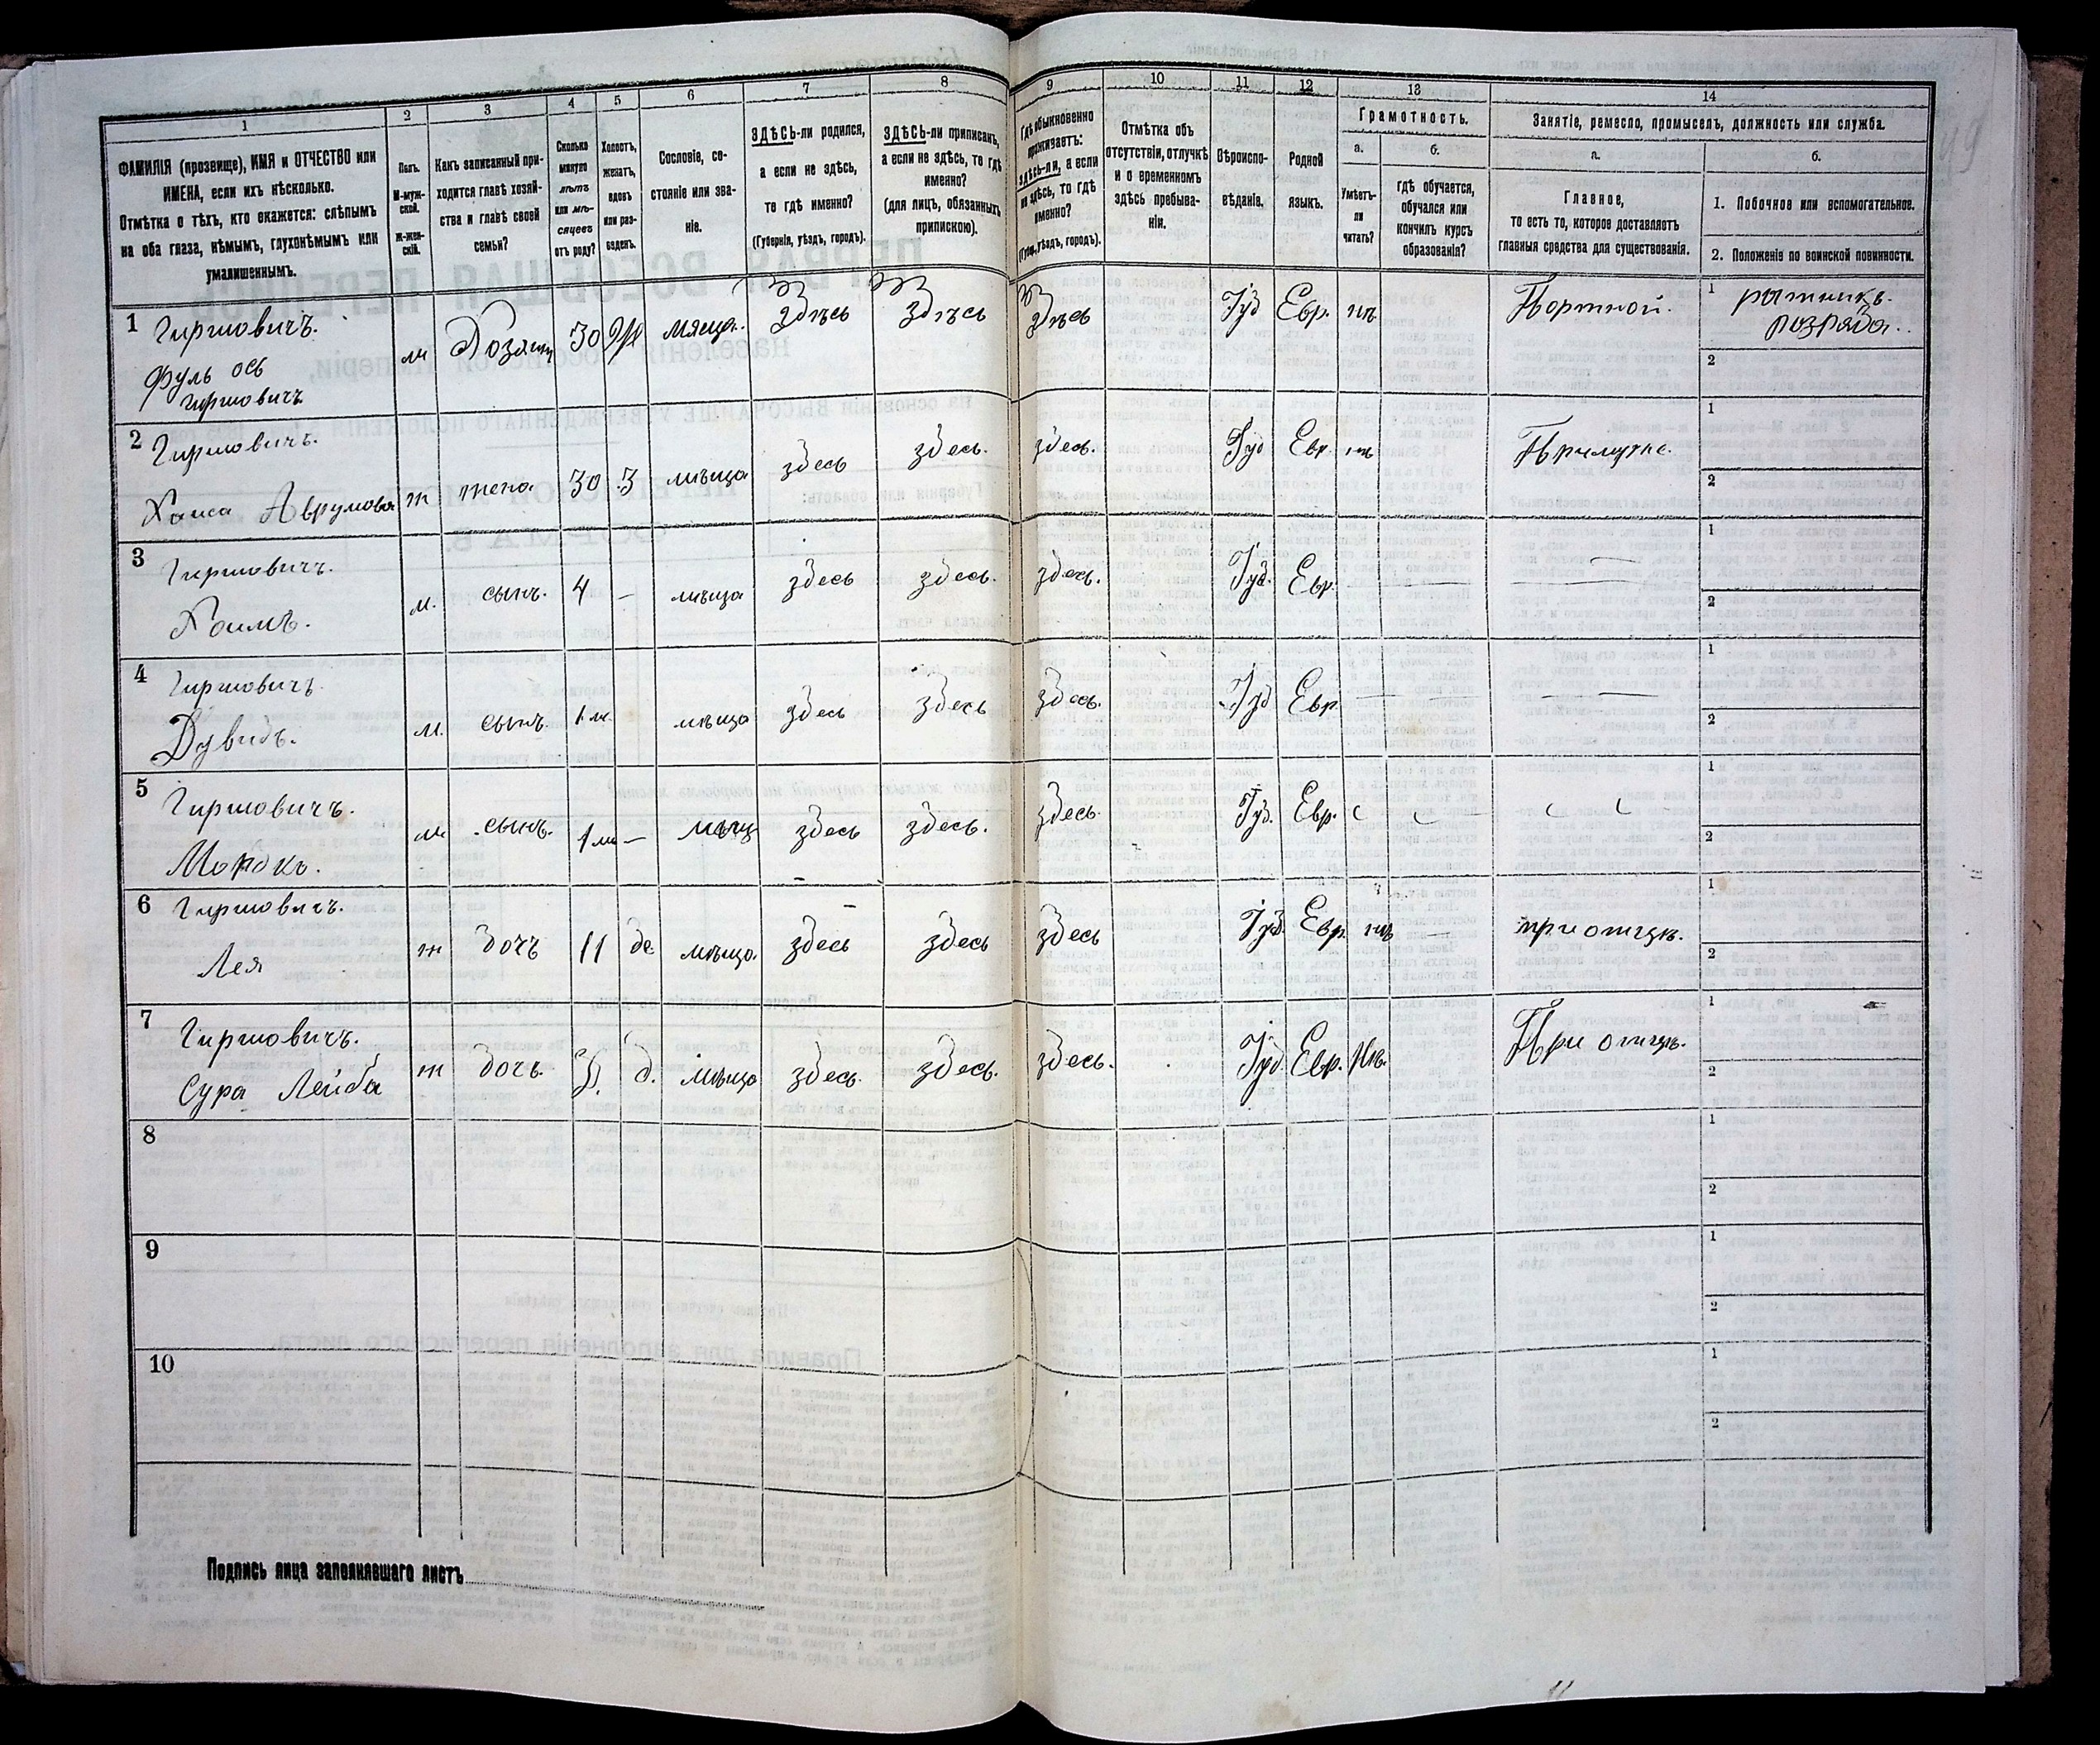 1
2
3
4
5
6
7
8
9
10
11
12
13
14
ФАМИЛІЯ (прозвище), ИМЯ и ОТЧЕСТВО или
ИМЕНА, если ихъ нѣсколько.
Отмѣтка о тѣхъ, кто окажется: слѣпымъ
на оба глаза, нѣмымъ, глухонѣмымъ или
умалишеннымъ.
Полъ.
М-муж-
ской.
Ж-жен-
скій.
Какъ записанный при-
ходится главѣ хозяй-
ства и главѣ своей
семьи?
Сколько
минуло
лѣтъ
или мѣ-
сяцевъ
отъ роду?
Холостъ,
женатъ,
вдовъ
или раз-
веденъ.
Сословіе, со-
стояніе или зва-
ніе.
ЗДѢСЬ-ли родился,
а если не здѣсь,
то гдѣ именно?
(Губернія, уѣздъ, городъ).
ЗДѢСЬ-ли приписанъ,
а если не здѣсь, то гдѣ
именно?
(для лицъ, обязанныхъ
припискою).
Гдѣ обыкновенно
проживаетъ:
здѣсь-ли, а если
не здѣсь, то гдѣ
именно?
(Губ., уѣздъ, городъ).
Отмѣтка объ
отсутствіи, отлучкѣ
и о временномъ
здѣсь пребыва-
ніи.
Вѣроиспо-
вѣданіе.
Родной
языкъ.
Грамотность.
а.
Умѣетъ-
ли
читать?
б.
гдѣ обучается,
обучался или
кончилъ курсъ
образованія?
Занятіе, ремесло, промыселъ, должность или служба.
а.
Главное,
то есть то, которое доставляетъ
главныя средства для существованія.
б.
1. Побочное или вспомогательное.
2. Положеніе по воинской повинности.
1 Гиршовичъ. м 30 Здѣсь Здѣсь Здѣсь Іуд Евр. нѣ Портной. 1
разряда.
Гиршовичъ 2
2 Гиршовичъ.
Хаиса Аврумова ж жена 30 З мѣща здесь здесь. здесь. Іуд Евр. нѣ 1
2
3 Гиршовичъ.
Хаимъ. м. сынъ. 4 — мѣща здесь здесь. здесь. Іуд. Евр. — — — 1
2
4 Гиршовичъ
Дувидъ. м. сынъ. 1 м. мѣща здесь здесь здесь. Іуд Евр — — — 1
2
5 Гиршовичъ.
м сынъ. 1 м — мѣщ здесь здесь. здесь. Іуд. Евр. 1
2
6 Гиршовичъ.
Лея ж дочь 11 де мѣща. здесь здесь здесь Іуд. Евр. нѣ — при отцѣ. 1
2
7 Гиршовичъ.
Сура Лейба ж дочь. д. мѣща здесь. здесь. здесь. Іуд Евр. Нѣ. При отцѣ. 1
2
8
1
2
9
1
2
10
1
2
Подпись лица заполнявшаго листъ